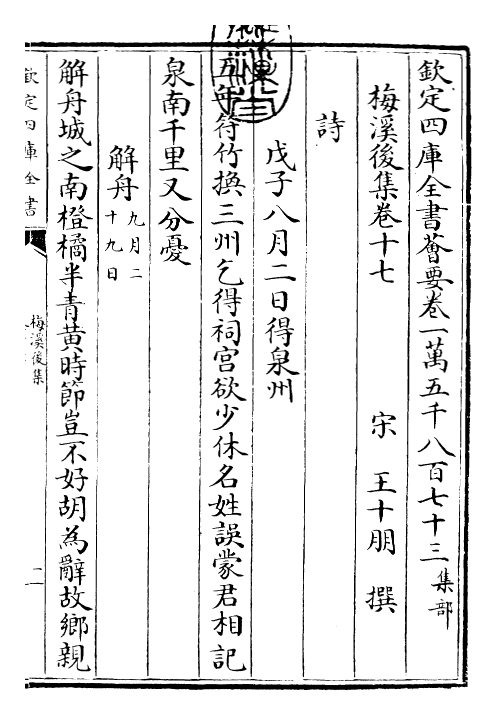 欽定四庫全書薈要卷一萬五千八百七十三集部
梅溪後集卷十七
宋 王十朋 撰
詩
戊子八月二日得泉州
五年符竹換三州乞得祠宮欲少休名姓誤蒙君相記
泉南千里又分憂
解舟九月二十九日
解舟城之南橙橘半青黃時節豈不好胡為辭故鄉親
欽定四庫全書
梅溪後集